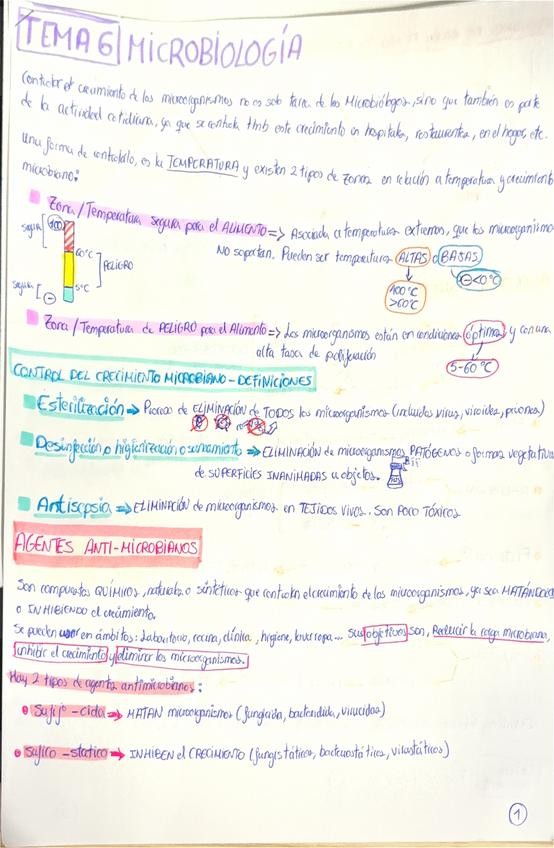 TEMA 6 MICROBIOLOGÍA
Controlar el crecimiento de los microorganismos no es solo tarea de los Microbiólogos, sino que también es parte
de la actividad cotidiana, ya que se controla tmb este crecimiento en hospitales, restaurantes, en el hogar, etc.
Una forma de controlarlo, es la TEMPERATURA y existen 2 tipos de zonas en relación a temperatura y crecimiento
microbiano:
Zona/Temperatura segura para el ALIMENTO => Asociada a temperaturas extremas, que los microorganismos
NO soportan. Pueden ser temperaturas ALTAS o BAJAS
100°C
>60°C
<0°C
segura
100
60°C
PELIGRO
5°C
segura
Zona/Temperatura de PELIGRO para el Alimento => Los microorganismos están en condiciones óptimas y con una
alta tasa de proliferación
5-60°C
CONTROL DEL CRECIMIENTO MICROBIANO - DEFINICIONES
Esterilización → Proceso de ELIMINACIÓN de TODOS los microorganismos (incluidos virus, viroides, priones)
Desinfección o higienización o saneamiento → ELIMINACIÓN de microorganismos PATÓGENOS o formas vegetativas
de SUPERFICIES INANIMADAS u objetos.
Antisepsia → ELIMINACIÓN de microorganismos en TEJIDOS VIVOS. Son POCO TÓXICOS
AGENTES ANTI-MICROBIANOS
Son compuestos QUÍMICOS, naturales o sintéticos que controlan el crecimiento de los microorganismos, ya sea MATÁNDOLOS
o INHIBIENDO el crecimiento.
Se pueden usar en ámbitos: Laboratorio, cocina, clínica, higiene, lavar ropa... Sus objetivos son, Reducir la carga microbiana,
inhibir el crecimiento y eliminar los microorganismos.
Hay 2 tipos de agentes antimicrobianos:
Sufijo -cida → MATAN microorganismos (fungicida, bactericida, virucidas)
Sufijo -statico → INHIBEN el CRECIMIENTO (fungistáticos, bacteriostáticos, virostáticos)
1